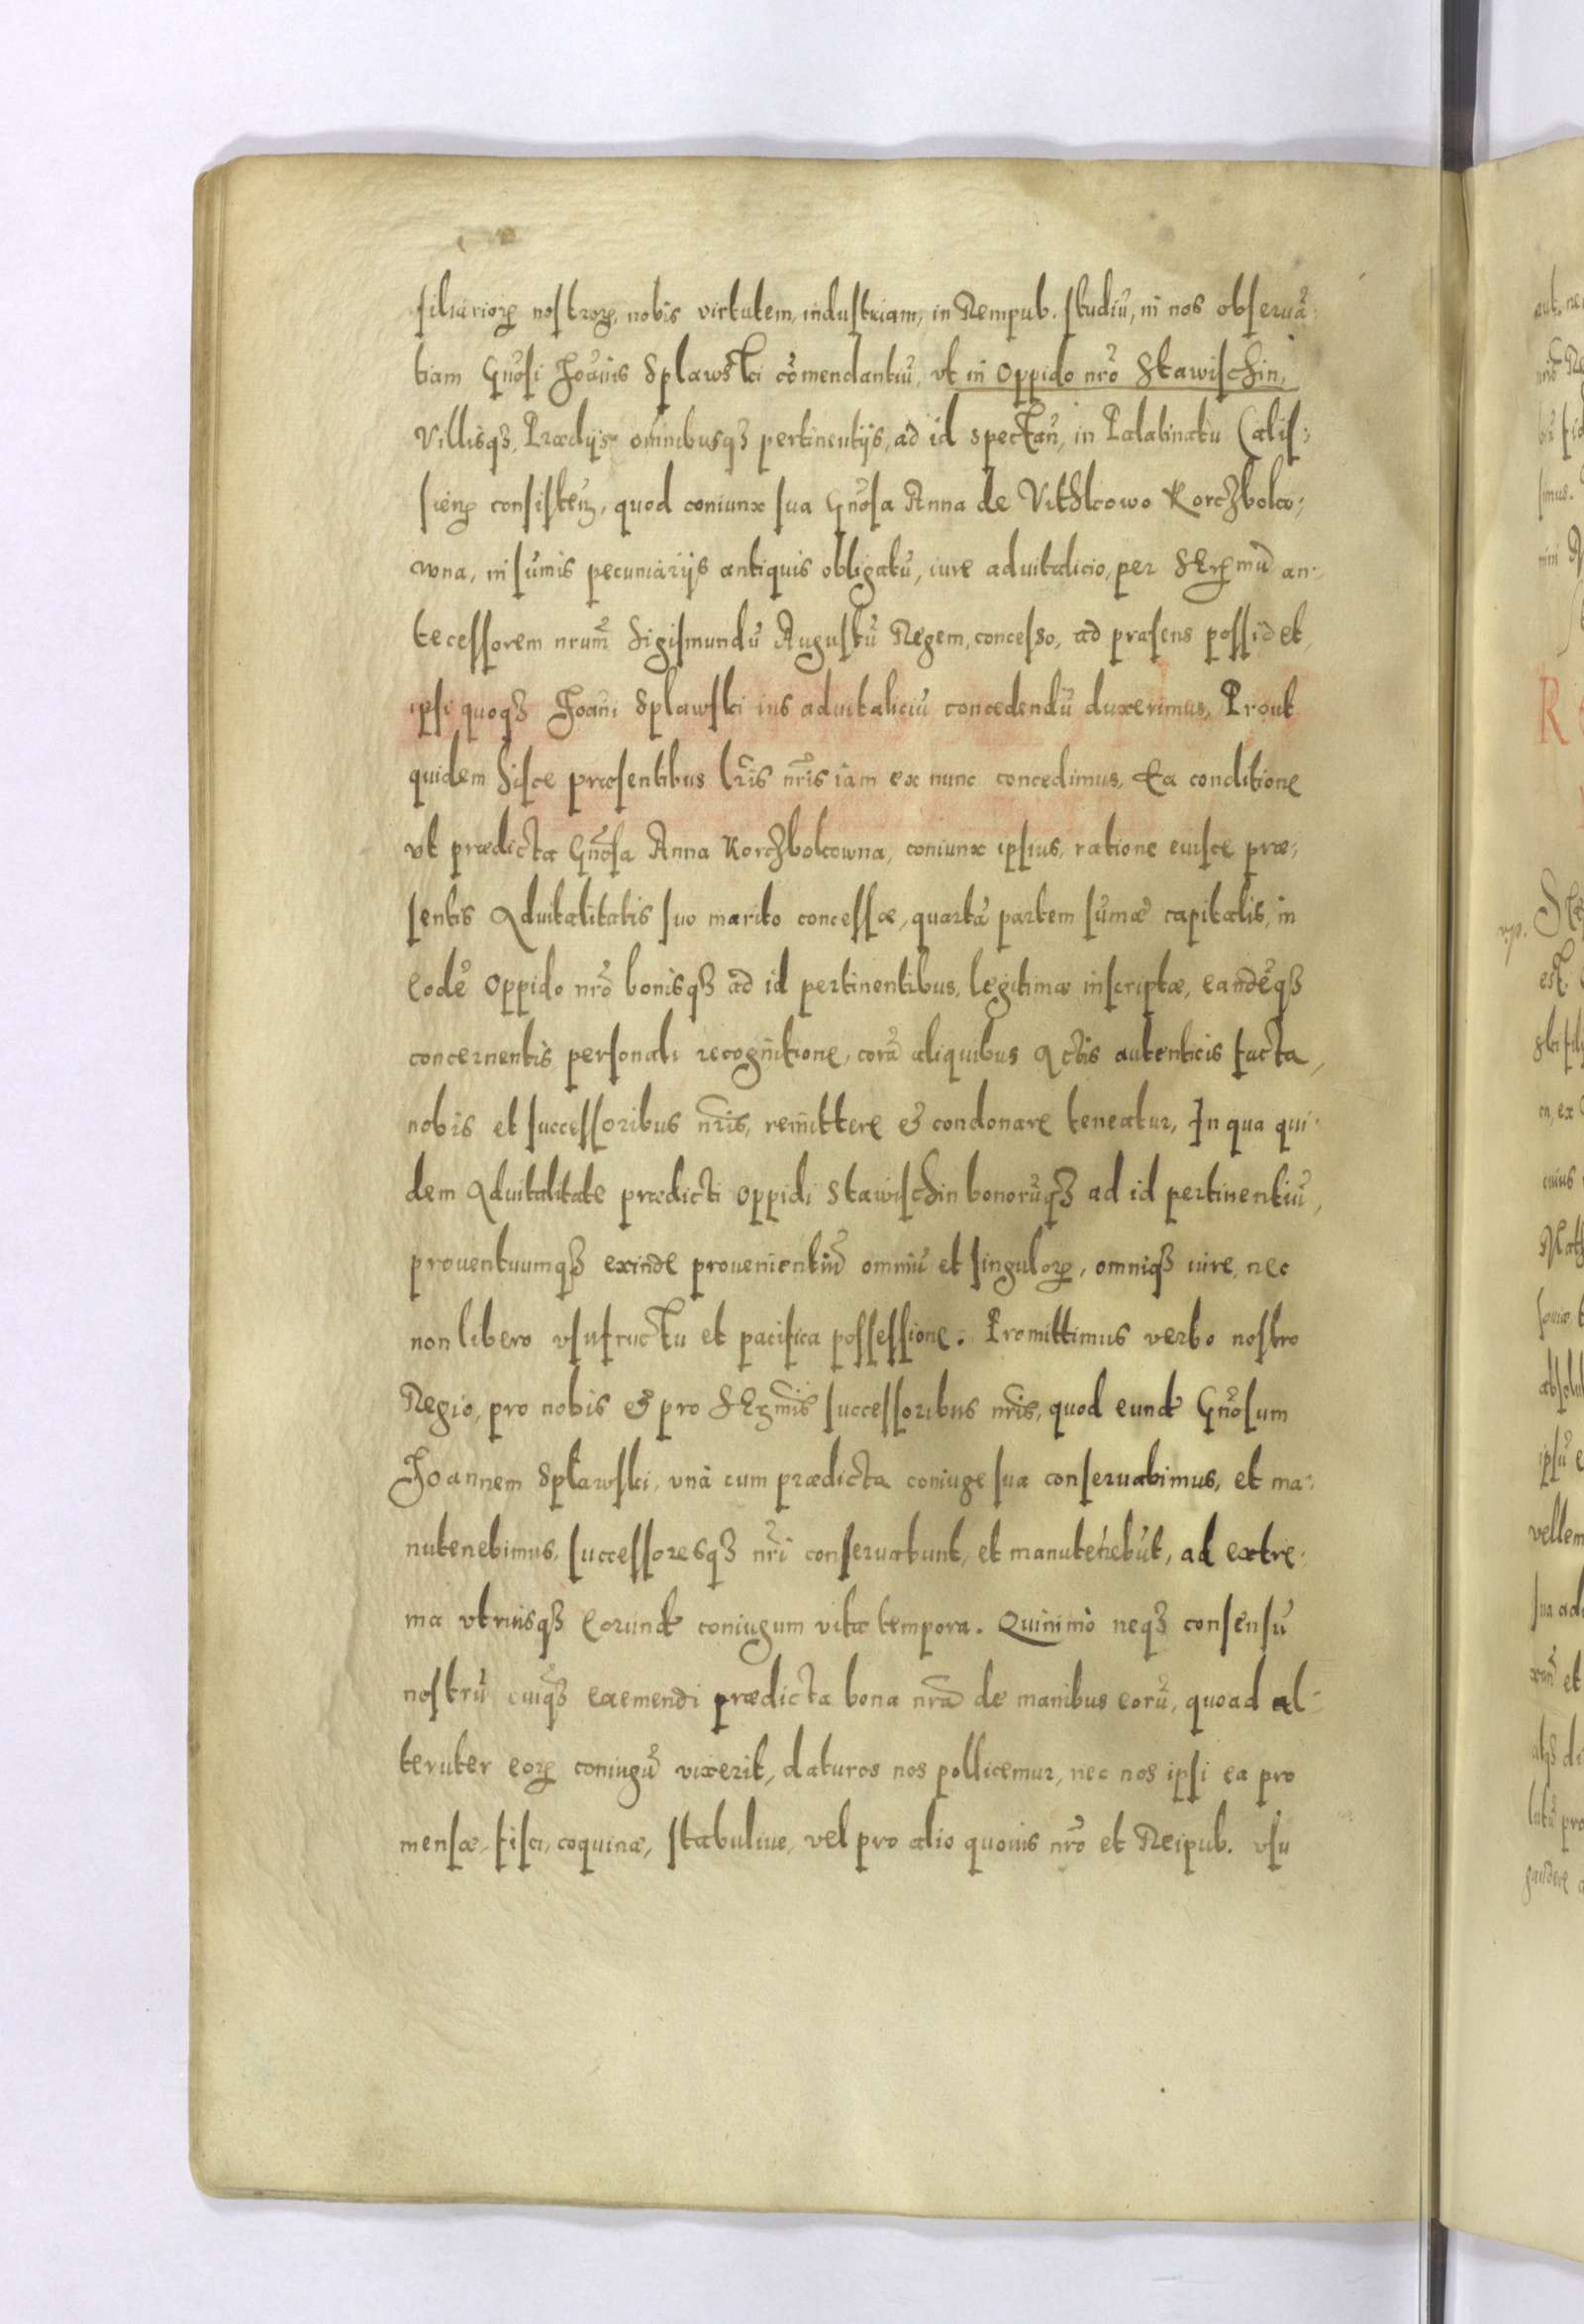 siliariorꝝ nostrorꝝ, nobis virtutem, industriam, in Rempub. studiũ, in nos obseruã:
tiam Gnõsi Joãnis Splawski cõmendantiũ, vt in Oppido nrõ Stawischin,
Villisqꝫ, Prædijs omnibusqꝫ pertinentijs, ad id spectañ, in Palatinatu Calis:
sienꝫ consisteñ, quod coniunx sua Gnõsa Anna de Vithkowo Korczbolco:
wna, in sũmis pecuniarijs antiquis obligatũ, iure aduitalicio, per SErꝫmũ an:
tecessorem nrum̃ Sigismundũ Augustũ Regem, concesso, ad præsens possidet,
ipsi quoqꝫ Joañi Splawski ius aduitaliciũ concedendũ duxerimus, Prout
quidem hisce præsentibus lr̃is nr̃is iam ex nunc concedimus, Ea conditione
vt prædicta Gnõsa Anna Korczbolcowna, coniunx ipsius, ratione euisce præ:
sentis Aduitalitatis suo marito concessæ, quartã partem sũmæ capitalis, in
eodẽ Oppido nrõ bonisqꝫ ad id pertinentibus, legitimæ inscriptæ, eandẽqꝫ
concernentis personali recognitione, corã aliquibus Actis autenticis facta,
nobis et successoribus nr̃is, remittere & condonare teneatur, In qua qui:
dem Aduitalitate prædicti oppidi Stawischin bonorũqꝫ ad id pertinentiũ,
prouentuumqꝫ exinde prouenientiũ omniũ et singulorꝝ, omniqꝫ iure, nec
non libero vsufructu et pacifica possessione. Promittimus verbo nostro
Regio, pro nobis & pro SErꝫmis successoribus nr̃is, quod eund Gnõsum
Joannem Splawski, vnà cum prædicta coniuge sua conseruabimus, et ma:
nutenebimus, successoresqꝫ nr̃i conseruabunt, et manutenebũt, ad extre:
ma vtriusqꝫ eorund coniugum vitæ tempora. Quinimò neqꝫ consensũ
nostrũ cuiqꝫ exemendi prædicta bona nrã de manibus eorũ, quoad al:
teruter eorꝝ coniugũ vixerit, daturos nos pollicemur, nec nos ipsi ea pro
mensæ, fisci, coquinæ, stabuliue, vel pro alio quouis nrõ et Reipub. vsu